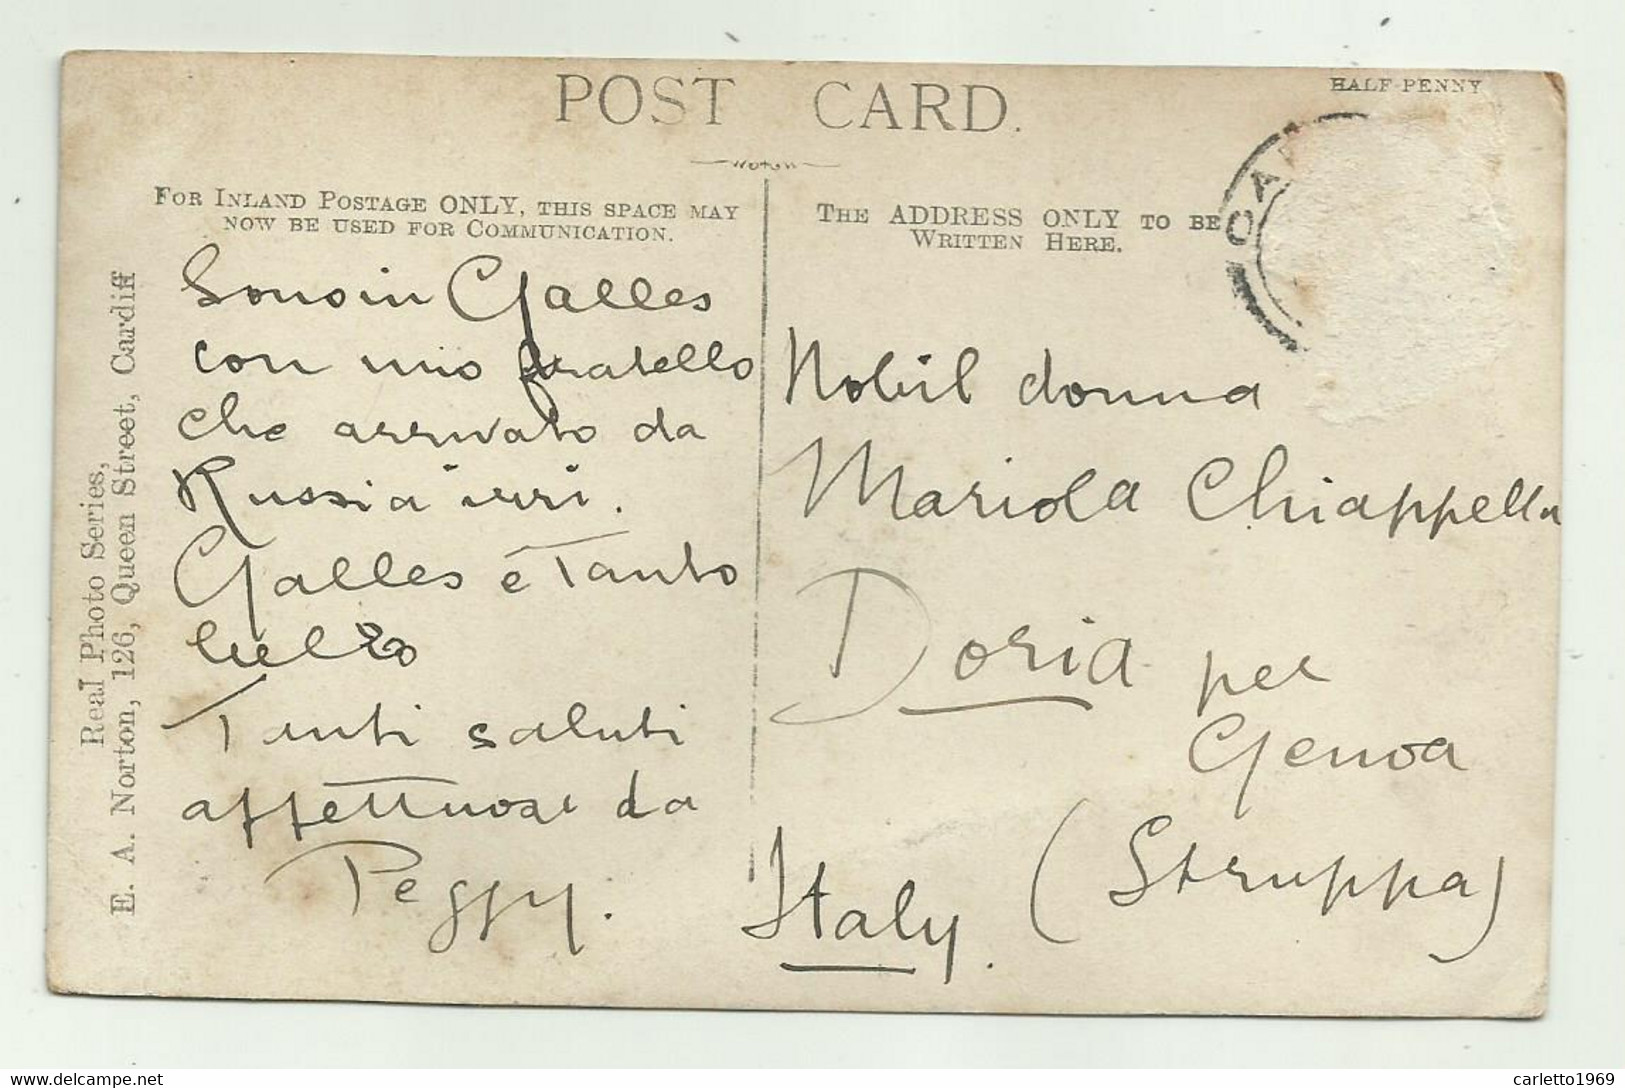 POST CARD.
HALF-PENNY
FOR INLAND POSTAGE ONLY, THIS SPACE MAY
NOW BE USED FOR COMMUNICATION.
THE ADDRESS ONLY TO BE
WRITTEN HERE.
CA
Real Photo Series,
E. A. Norton, 126, Queen Street, Cardiff
Sono in Galles
con mio fratello
che arrivato da
Russia ieri.
Galles è Tanto
bello
Tanti saluti
affettuosi da
Peggy.
Nobil donna
Mariola Chiappella
Doria per
Genoa
(Struppa)
Italy.
delcampe.net
carletto1969